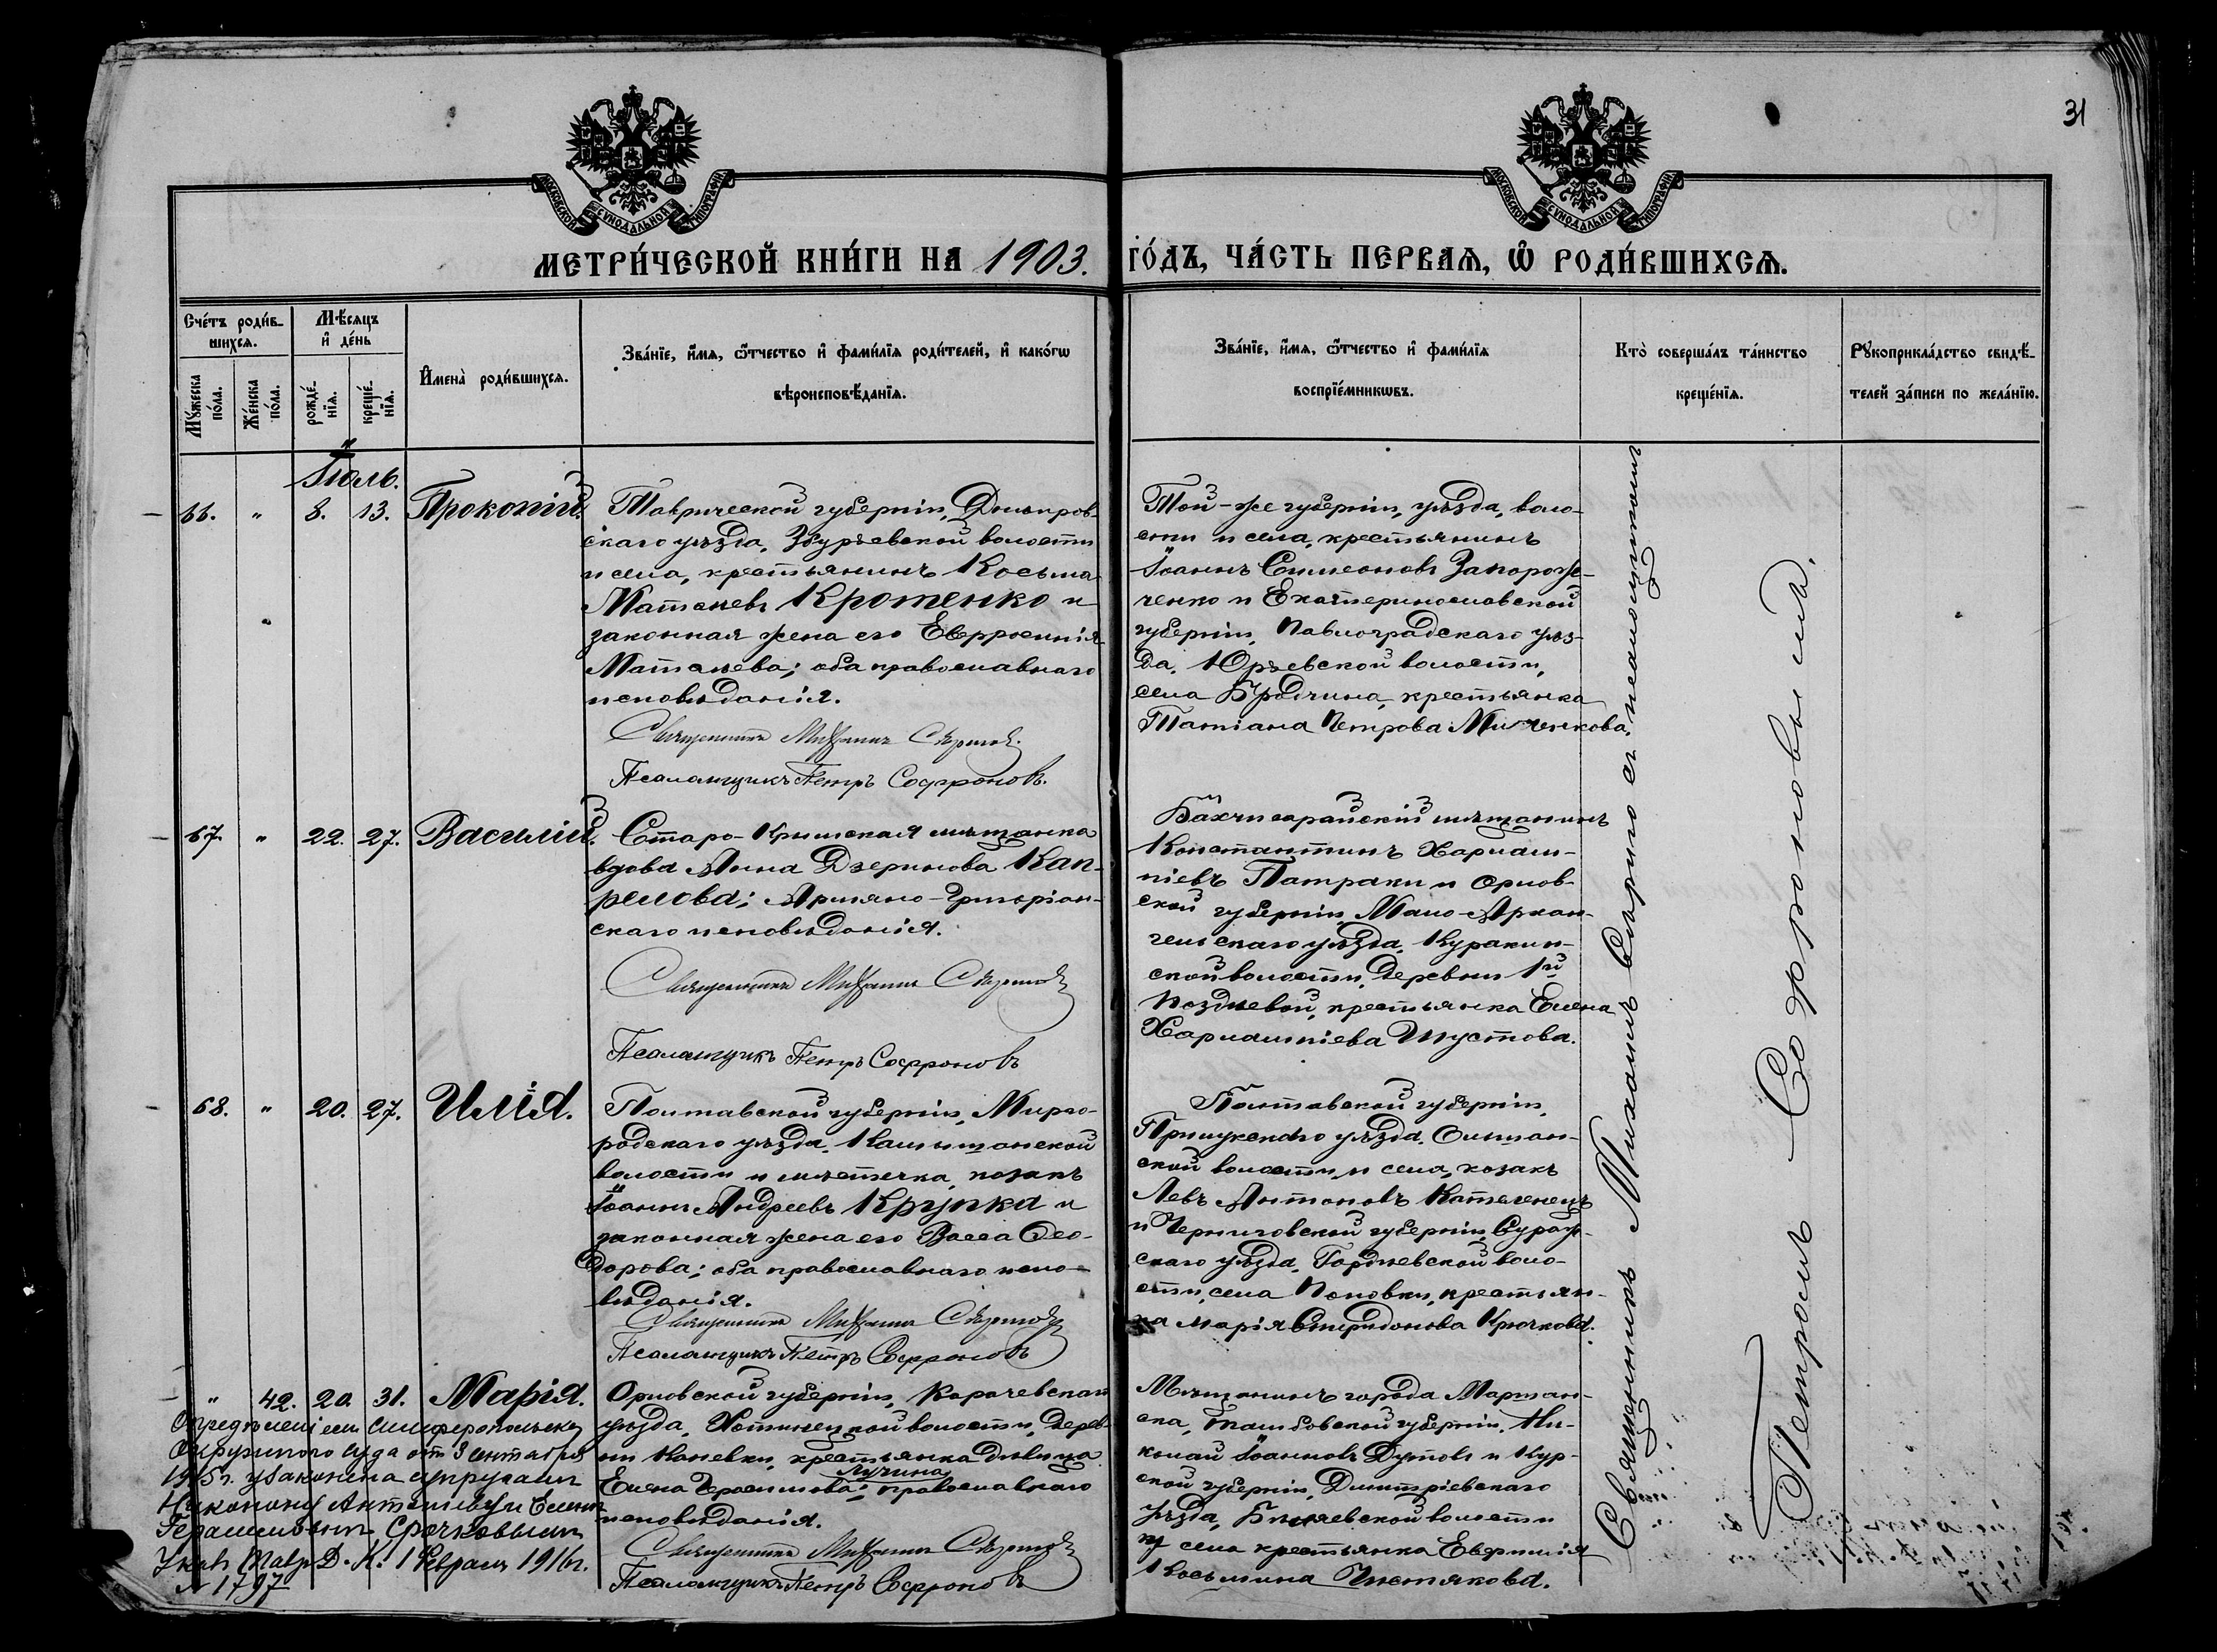 31
МОСКОВСКОЙ СѴНОДАЛЬНОЙ ТИПОГРАФІИ
МОСКОВСКОЙ СѴНОДАЛЬНОЙ ТИПОГРАФІИ
МЕТРИ́ЧЕСКОЙ КНИ́ГИ НА 1903. ГО́ДЪ, ЧА́СТЬ ПЕРВАѦ, Ѡ РОДИ́ВШИХСѦ.
Сче́тъ роди́в-
шихсѧ.
Мѣ́сѧцъ
и де́нь
Мꙋ́жеска по́ла.
Же́нска по́ла.
рожде́-нїѧ.
креще́-нїѧ.
Имена̀ роди́вшихсѧ.
Зва́нїе, и́мѧ, ѻ́тчество и фами́лїѧ роди́телей, и како́гѡ
вѣроисповѣ́данїѧ.
Зва́нїе, и́мѧ, ѻ́тчество и фами́лїѧ
воспрїе́мникѡвъ.
Кто̀ соверша́лъ та́инство
креще́нїѧ.
Рꙋкоприкла́дство свидѣ́-
телей за́писи по жела́нїю.
Іюль.
66. " 8. 13. Прокопій.
Таврической губерніи, Днѣпров-
скаго уѣзда, Збурьевской волости
и села, крестьянинъ Косьма
Матѳеевъ Кротенко и
законная жена его Евфросинія
Матѳеева; оба православнаго
исповѣданія.
Священникъ Михаилъ Сѣрпи
Псаломщикъ Петръ Софроновъ.
Той-же губерніи, уѣзда, воло-
сти и села, крестьянинъ
Іоаннъ Симеоновъ Запорож-
ченко и Екатеринославской
губерніи, Павлоградскаго уѣз-
да, Юрьевской волости,
села крестьянка
Татіана Петрова
67. " 22. 27. Василій.
Старо-Крымская мѣщанка
вдова Анна Кап-
релова; Армяно-Григоріан-
скаго исповѣданія.
Священникъ Михаилъ
Псаломщикъ Петръ Софроновъ
Бахчисарайскій мѣщанинъ
Константинъ Харлам-
піевъ Патраки и Орлов-
ской губерніи, Мало-Архан-
гельскаго уѣзда, Куракин-
ской волости, деревни 1й
Позднѣевой, крестьянка Елена
Харлампіева Шустова.
68. " 20. 27. Илія.
Полтавской губерніи, Мирго-
родскаго уѣзда, Камышанской
волости и мѣстечка, козакъ
Іоаннъ Андреевъ Крупка и
законная жена его Васса Ѳео-
дорова; оба православнаго испо-
вѣданія.
Священникъ Михаилъ
Псаломщикъ Петръ Софроновъ
Полтавской губерніи,
Прилукскаго уѣзда, Ольшан-
ской волости и села, козакъ
Левъ Антоновъ
и Черниговской губерніи, Сураж-
скаго уѣзда, Гордѣевской воло-
сти, села Поповки, крестьян-
ка Марія Спиридонова Крючкова.
" 42. 20. 31. Марія.
Орловской губерніи, Карачевскаго
уѣзда, Хотынецкой волости, дерев-
ни крестьянка дѣвица
Елена Герасимова Лучина; православнаго
исповѣданія.
Священникъ Михаилъ
Псаломщикъ Петръ Софроновъ
Мѣщанинъ города Моршан-
ска, Тамбовской губерніи, Ни-
колай Іоанновъ Дутовъ и Кур-
ской губерніи, Дмитріевскаго
уѣзда, волости
и села крестьянка Евфимія
Косьмина
Опредѣленіемъ Симферопольскаго
Окружного суда отъ 3 сентября
1915г. узаконена супругами
Никономъ и Еленою
Герасимовыми
Указъ Тавр. Д. К. 1 Февраля 1916г.
№ 1797
Священникъ Михаилъ съ псаломщикомъ
Петромъ Софроновымъ.